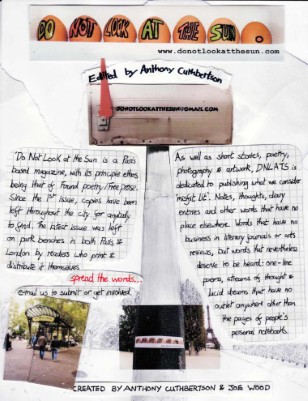 DO NOT LOOK AT THE SUN
www.donotlookatthesun.com
Edited by Anthony Cuthbertson
DONOTLOOKATTHESUN@GMAIL.COM
'Do Not Look at the Sun is a Paris
based magazine, with its principle ethos
being that of Found poetry/Free Prose.
Since the 1st issue, copies have been
left throughout the city for anybody
to find. The latest issue was left
on park benches in both Paris &
London by readers who print &
distribute it themselves.
spread the words...
email us to submit or get involved.
As well as short stories, poetry,
photography & artwork, DNLATS is
dedicated to publishing what we consider
'misfit lit'. Notes, thoughts, diary
entries and other words that have no
place elsewhere. Words that have no
business in literary journals or arts
reviews, but words that nevertheless
deserve to be heard: one-line
poems, streams of thought &
lucid dreams that have no
outlet anywhere other than
the pages of people's
personal notebooks.
CREATED BY ANTHONY CUTHBERTSON & JOE WOOD